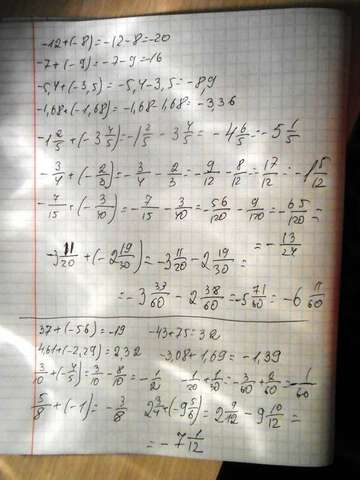 -12+(-8)=-12-8=-20
-7+(-9)=-7-9=-16
-5,4+(-3,5)=-5,4-3,5=-8,9
-1,68+(-1,68)=-1,68-1,68=-3,36
-1 2/5+(-3 4/5)=-1 2/5-3 4/5=-4 6/5=-5 1/5
-3/4+(-2/3)=-3/4-2/3=-9/12-8/12=-17/12=-1 5/12
-7/15+(-3/40)=-7/15-3/40=-56/120-9/120=-65/120=
=-13/24
-3 11/20+(-2 19/30)=-3 11/20-2 19/30=
=-3 33/60-2 38/60=-5 71/60=-6 11/60
37+(-56)=-19 -43+75=32
4,61+(-2,29)=2,32 -3,08+1,69=-1,39
3/10+(-4/5)=3/10-8/10=-1/2 -1/20+1/30=-3/60+2/60=-1/60
5/8+(-1)=-3/8 2 3/4+(-9 5/6)=2 9/12-9 10/12=
=-7 1/12